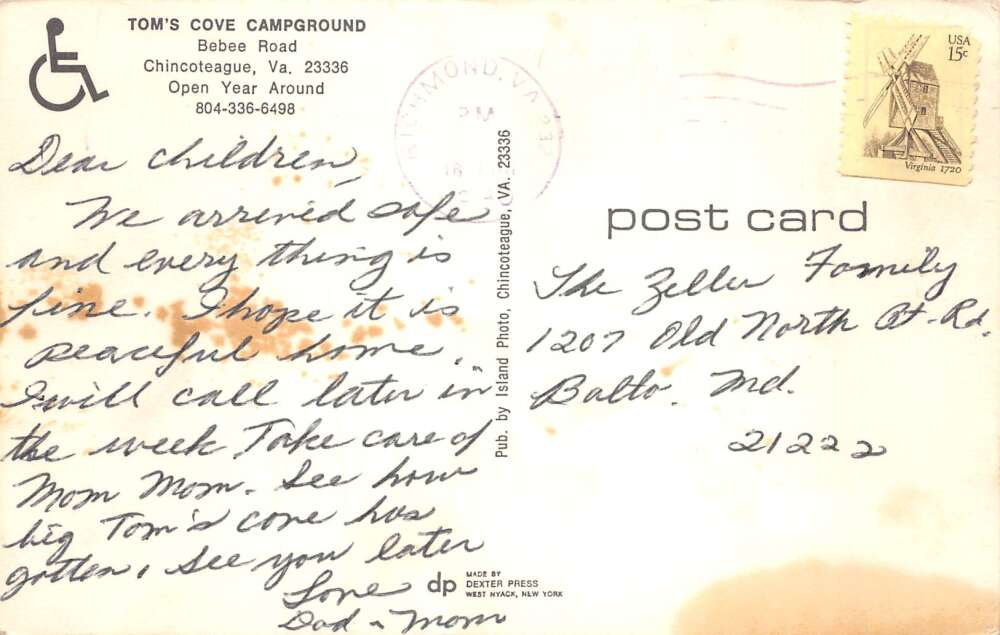 TOM'S COVE CAMPGROUND
Bebee Road
Chincoteague, Va. 23336
Open Year Around
804-336-6498
Dear children,
We arrived safe
and every thing is
fine. I hope it is
peaceful home.
I will call later in
the week. Take care of
Mom Mom. See how
big Tom's cove has
gotten. See you later
Love
Dad & Mom
Pub. by Island Photo, Chincoteague, VA. 23336
dp
MADE BY
DEXTER PRESS
WEST NYACK, NEW YORK
RICHMOND, VA 232
PM
USA
15c
Virginia 1720
post card
The Zeller Family
1207 Old North Pt. Rd.
Balto. Md.
21222